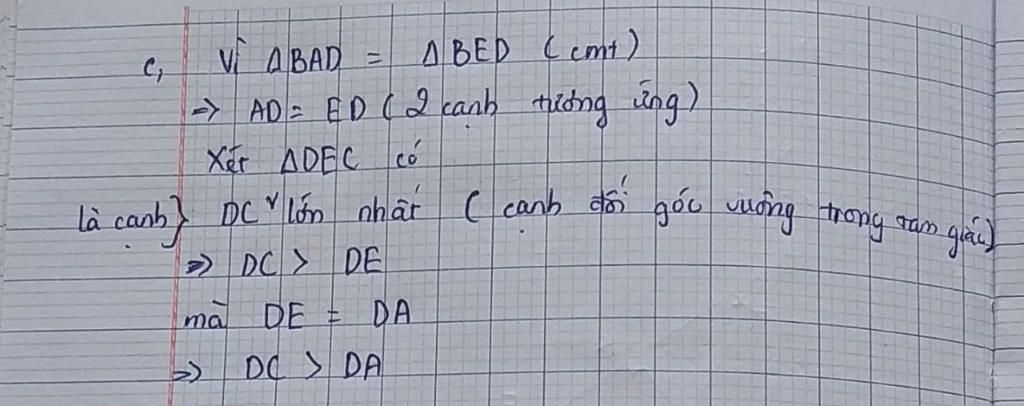 c, Vì ΔBAD = ΔBED (cmt)
=> AD = ED (2 cạnh tương ứng)
Xét ΔDEC có
là cạnh} DC ˅ lớn nhất (cạnh đối góc vuông trong tam giác)
=> DC > DE
mà DE = DA
=> DC > DA